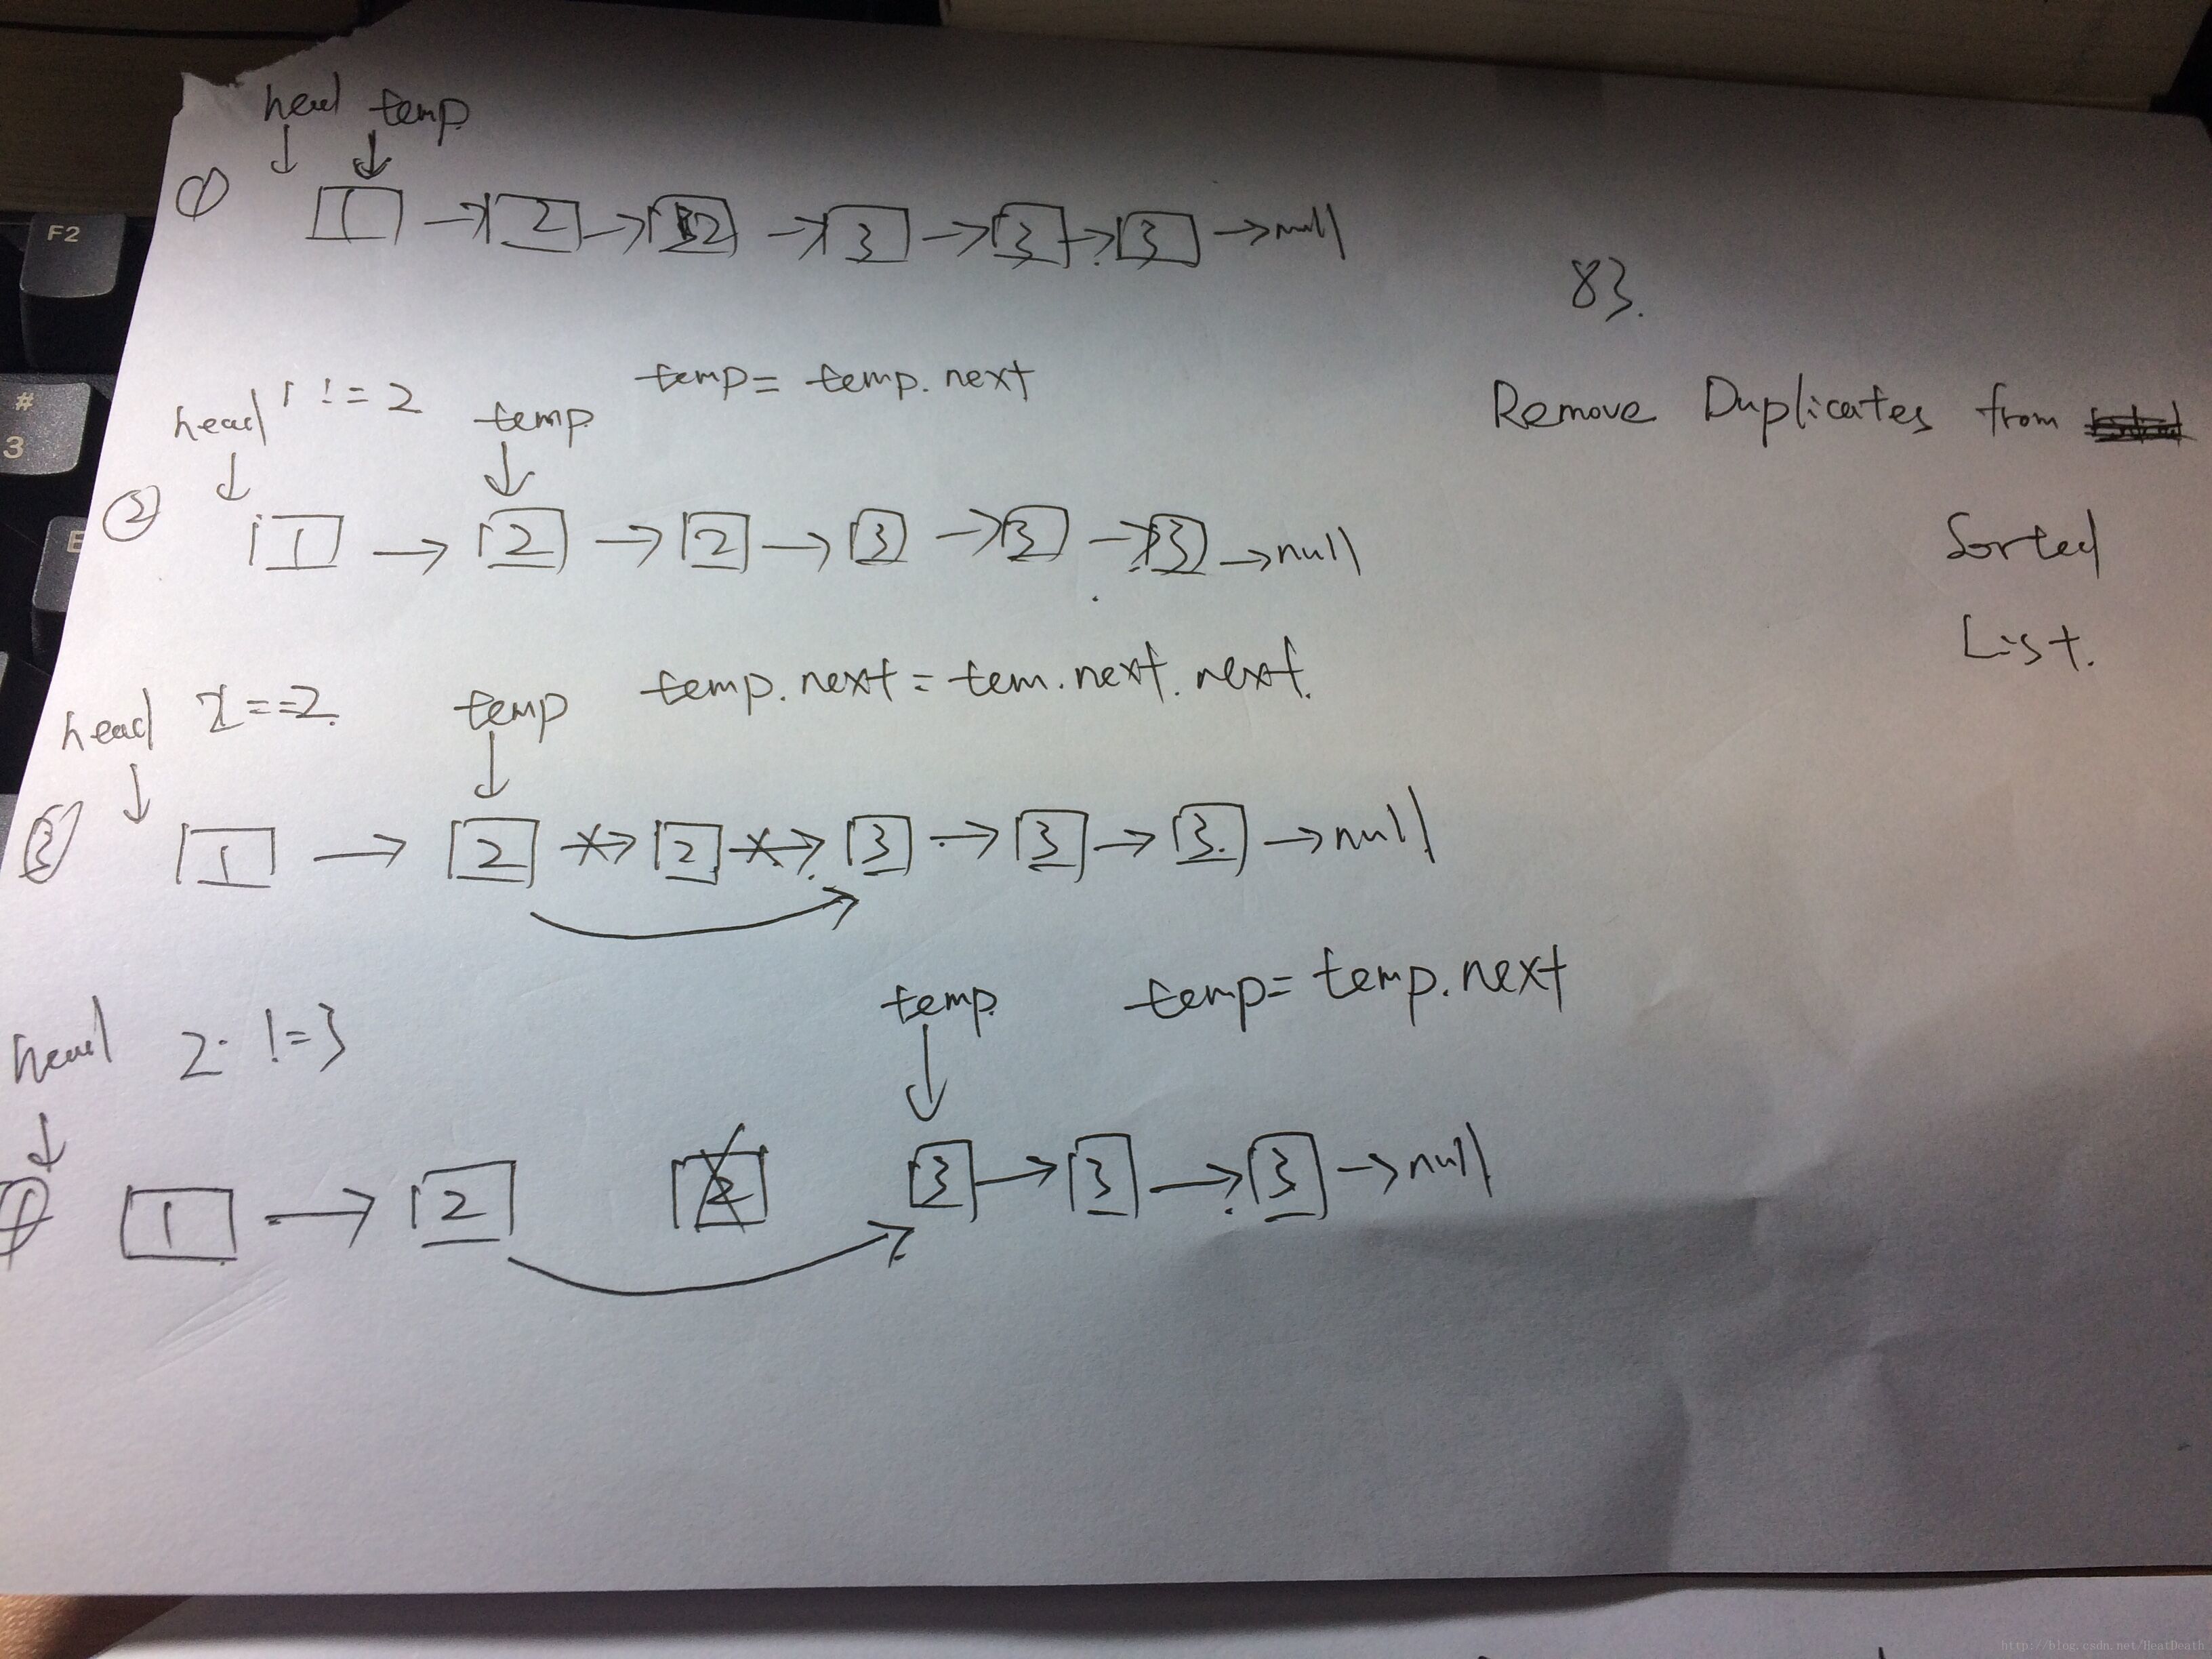 head temp
① 1 → 2 → 2 → 3 → 3 → 3 → null
83.
head 1 != 2 temp temp = temp.next
Remove Duplicates from
Sorted
List.
② 1 → 2 → 2 → 3 → 3 → 3 → null
head 2 == 2. temp temp.next = tem.next.next.
③ 1 → 2 → 2 → 3 → 3 → 3 → null
head 2 != 3 temp temp = temp.next
1 → 2 2 3 → 3 → 3 → null
F2
#
3
E
http://blog.csdn.net/HeatDeath